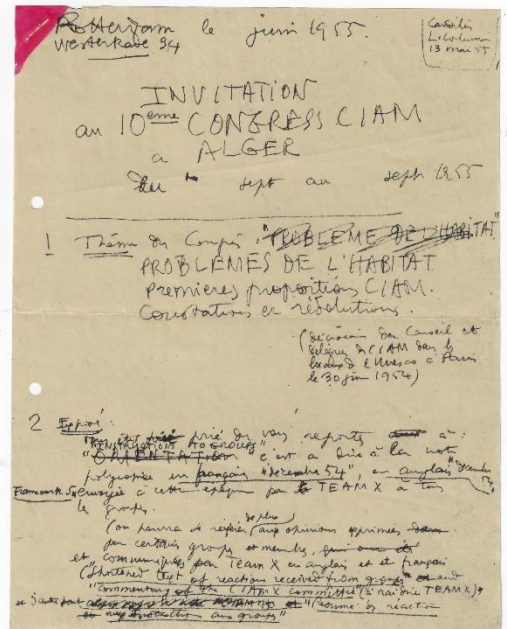 Rotterdam le juin 1955.
Westerkade 34
Candilis
13 mai 55
INVITATION
au 10eme CONGRESS CIAM
a ALGER
Du sept au sept 1955
1 Thème du Congrès : "PROBLEME DE L'HABITAT"
PROBLEMES DE L'HABITAT
Premieres propositions CIAM.
Constatations et résolutions.
(décision du Conseil et
délégués du CIAM dans le
bureau d l'Unesco a Paris
le 30 juin 1954)
2 Exposé:
prié de vous reporter à :
"INSTRUCTIONS TO GROUPS"
"ORIENTATION c'est a dire à la note
polycopiée en français "décembre 54", en anglais "décembre
54,
Framework 5, envoyée à cette époque par le TEAM X à tous
le groupes.
(on pourra se référer de plus aux opinions exprimées
par certains groups et membres,
et communiquées par Team X en anglais et français
(shortened text of reactions received from groups" and
"commentary of the CIAM X committee (c'est à dire TEAM X)"
"résumé de reaction
aux groups"